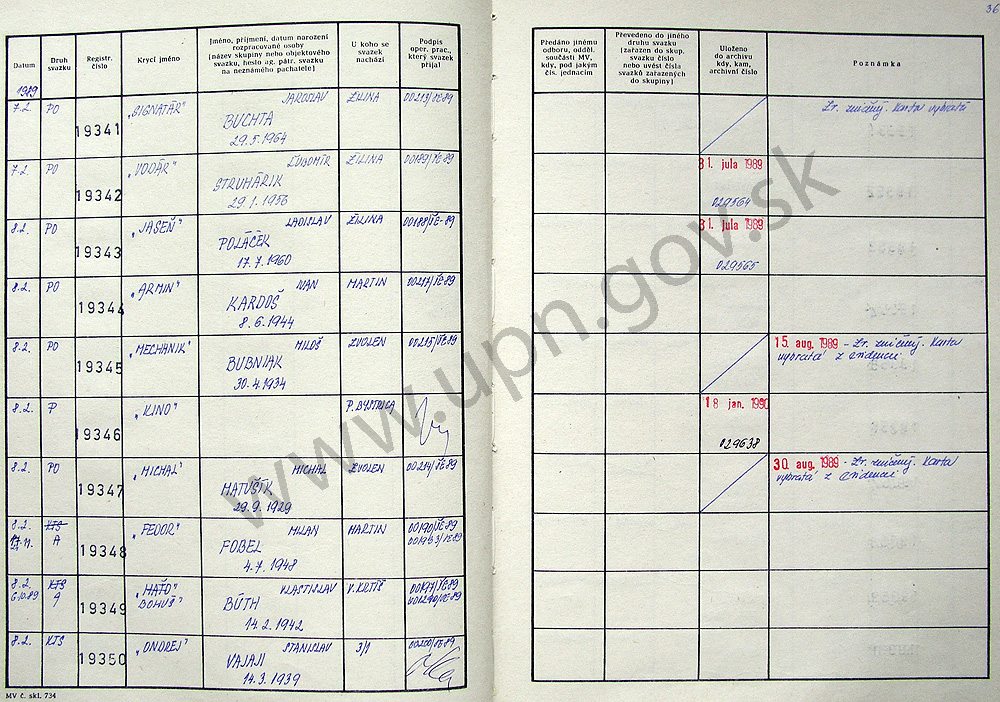 36
Datum
Druh svazku
Registr. číslo
Krycí jméno
Jméno, příjmení, datum narození
rozpracované osoby
[název skupiny nebo objektového
svazku, heslo ag. pátr. svazku
na neznámého pachatele]
U koho se
svazek
nachází
Podpis
oper. prac.,
který svazek
přijal
Předáno jinému
odboru, odděl.
součásti MV,
kdy, pod jakým
čís. jednacím
Převedeno do jiného
druhu svazku
[zařazen do skup.
svazku číslo
nebo uvést čísla
svazků zařazených
do skupiny]
Uloženo
do archivu
kdy, kam,
archivní číslo
Poznámka
1989
7.2. PO 19341 „SIGNATÁR" JAROSLAV ŽILINA 00213/ŠE-89
BUCHTA
29.5.1964
Zr. zničený. Karta vybratá
7.2. PO 19342 „VODÁR" ĽUBOMÍR ŽILINA 00189/ŠE-89
STRUHÁRIK
29.1.1956
31. jula 1989
029564
8.2. PO 19343 „JASEŇ" LADISLAV ŽILINA 00188/ŠE-89
POLÁČEK
17.7.1960
31. jula 1989
029565
8.2. PO 19344 „ARMIN" IVAN MARTIN 00217/ŠE-89
KARDOŠ
8.6.1944
8.2. PO 19345 „MECHANIK" MILOŠ ZVOLEN 00215/ŠE-89
BUBNIAK
30.4.1934
15. aug. 1989 - Zr. zničený. Karta
vybratá z evidencie
8.2. P 19346 „KINO" P. BYSTRICA
18 jan. 1990
029638
8.2. PO 19347 „MICHAL" MICHAL ZVOLEN 00214/ŠE-89
MATUŠÍK
29.9.1929
30. aug. 1989 - Zr. zničený. Karta
vybratá z evidencie
8.2. KTS 19348 „FEDOR" MILAN MARTIN 00190/ŠE-89
A
FOBEL
4.7.1948
8.2. KTS 19349 „MAŤO" VLASTISLAV V. KRTÍŠ 00197/ŠE-89
6.10.89 A BOHUŠ" BÚTH 001240/ŠE-89
14.2.1942
8.2. KTS 19350 „ONDREJ" STANISLAV 3/1 00200/ŠE-89
VAJAJI
14.3.1939
MV č. skl. 734
www.upn.gov.sk